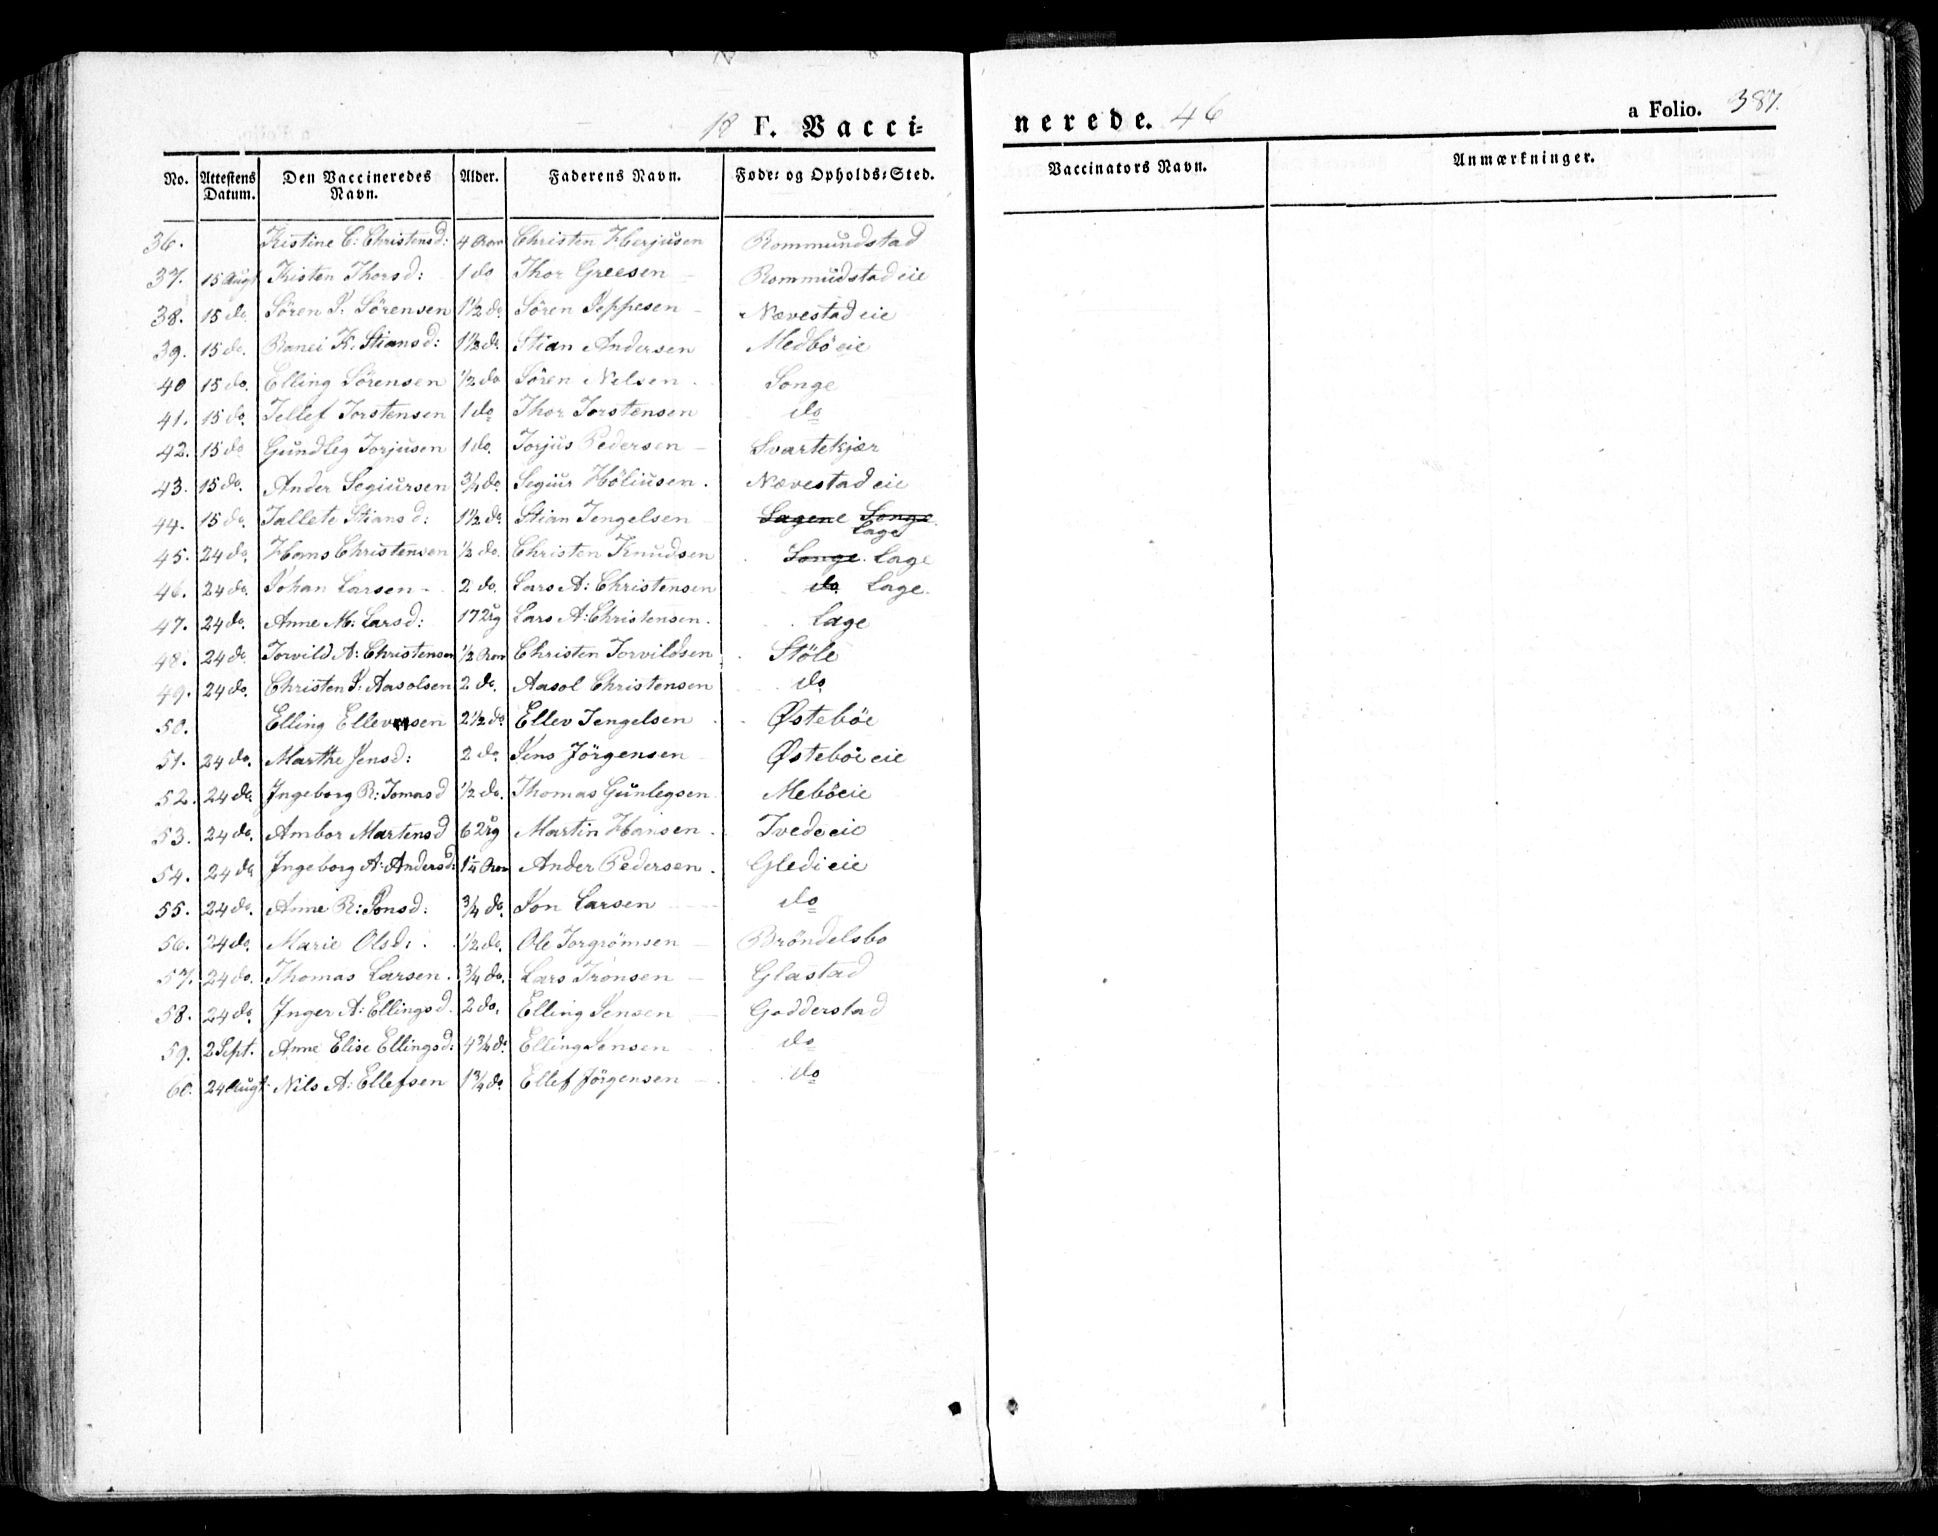 18 F. Vacci=nerede. 46 a Folio. 387.
No. Attestens Datum. Den Vaccineredes Navn. Alder. Faderens Navn. Føde= og Opholds=Sted. Vaccinators Navn. Anmærkninger.
36. Kistine C: Christensd: 4 Herjusen Rommundstad
37. 15 Augt Kisten Thorsd: 1 do Thor Greesen Rommudstadeie
38. 15 do. Sören J. Sörensen 1 1/2 do Sören Jeppesen Nævestadeie
39. 15 do. Ranei K. Stiansd: 1 1/2 do. Stian Andersen Medböeie
40 15 do. Elling Sörensen 1/2 do Sören Nelsen. Songe
41. 15 do. Tellef Torstensen 1 do Thor Torstensen do
42. 15 do Gundleg Torjusen 1 do. Torjus Pedersen Svartekjær
43. 15 do. Ander Segiursen 3/4 do. Segiur Höliusen. Nævestadeie
44. 15 do. Tallete Stiansd: 1 1/2 do. Stian Tengelsen Lagene Songe Lage
45. 24 do. Hans Christensen 1/2 do. Christen Knudsen Songe. Lage
46. 24 do. Johan Larsen 2 do. Lars A: Christensen do. Lage.
47. 24 do. Anne M: Larsd: 17 Lars A: Christensen. Lage
48. 24 do Torvild A: Christensen 1/2 Christen Torvildsen Støle
49. 24 do. Christen J: Aasolsen 2 do. Aasol Christensen do
50. Elling Ellevsen 2 1/2 do. Ellev Tengelsen Østebøe
51. 24 do. Marthe Jensd: 2 do. Jens Jörgensen Østebøeeie
52. 24 do. Ingeborg R: Tomasd 1/2 do. Thomas Gunlegsen Meböeie
53. 24 do. Ambor Martensd 6 Martin Hansen. Tvedeeie
54. 24 do Ingeborg A: Andersd: 1 1/4 Ander Pedersen. Gledieie
55. 24 do. Anne R: Jonsd: 3/4 do. Jon Larsen do
56. 24 do. Marie Olsd: 1/2 do. Ole Torgrömsen Bröndelsbo
57. 24 do. Thomas Larsen. 3/4 do. Lars Trönsen Glastad
58. 24 do. Inger A: Ellingsd. 2 do. Elling Jensen Godderstad
59. 2 Sept. Anne Elise Ellingsd: 4 3/4 do. Elling Jensen do
60. 24 Augt. Nils A: Ellefsen 1 3/4 do. Ellef Jörgensen do